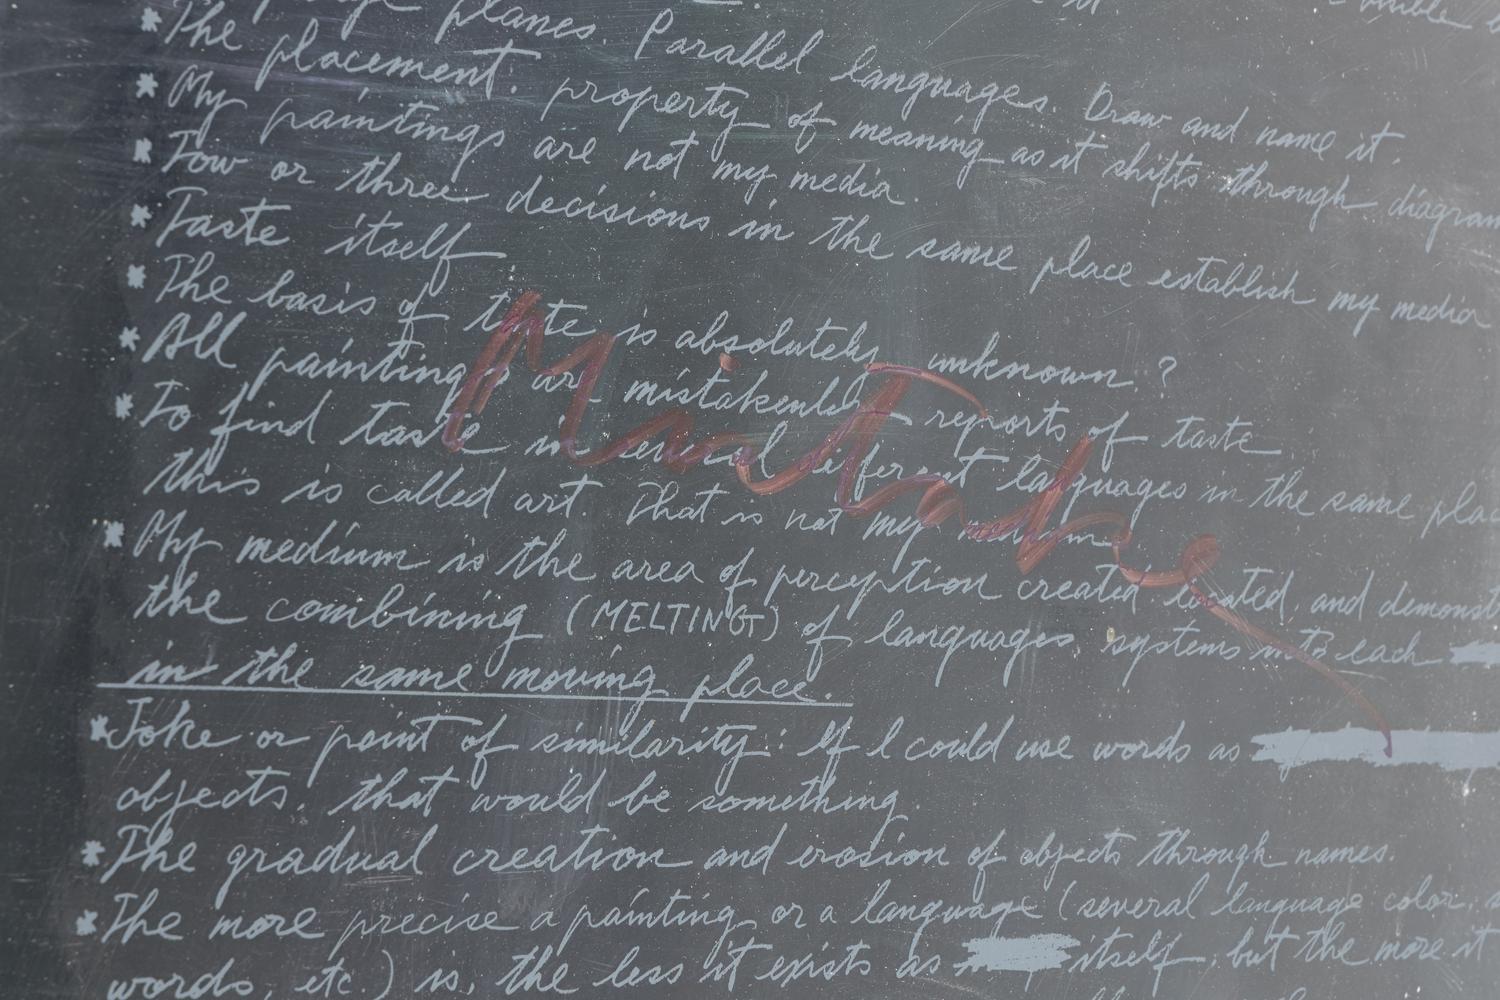 planes. Parallel languages. Draw and name it.
* The placement. property of meaning as it shifts through diagram
* My paintings are not my media.
* Tow or three decisions in the same place establish my media
* Taste itself
* The basis of taste is absolutely unknown.?
* All paintings are mistakenly reports of taste
* To find taste in several different languages in the same place
this is called art. That is not my medium
* My medium is the area of perception created located, and demonst
the combining (MELTING) of languages, systems into each
in the same moving place.
* Joke or point of similarity: If I could use words as
objects, that would be something.
* The gradual creation and erosion of objects through names.
* The more precise a painting or a language (several language color,
words, etc.) is, the less it exists as itself, but the more it
MisTake